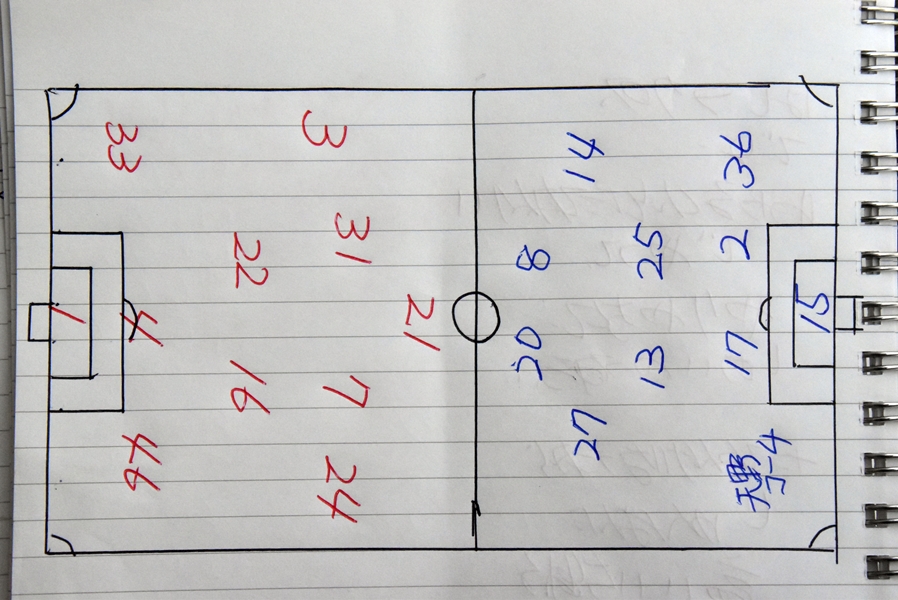 33
3
31
22
21
1
4
7
16
46
24
14
36
8
25
2
15
20
13
17
27
天野
コーチ